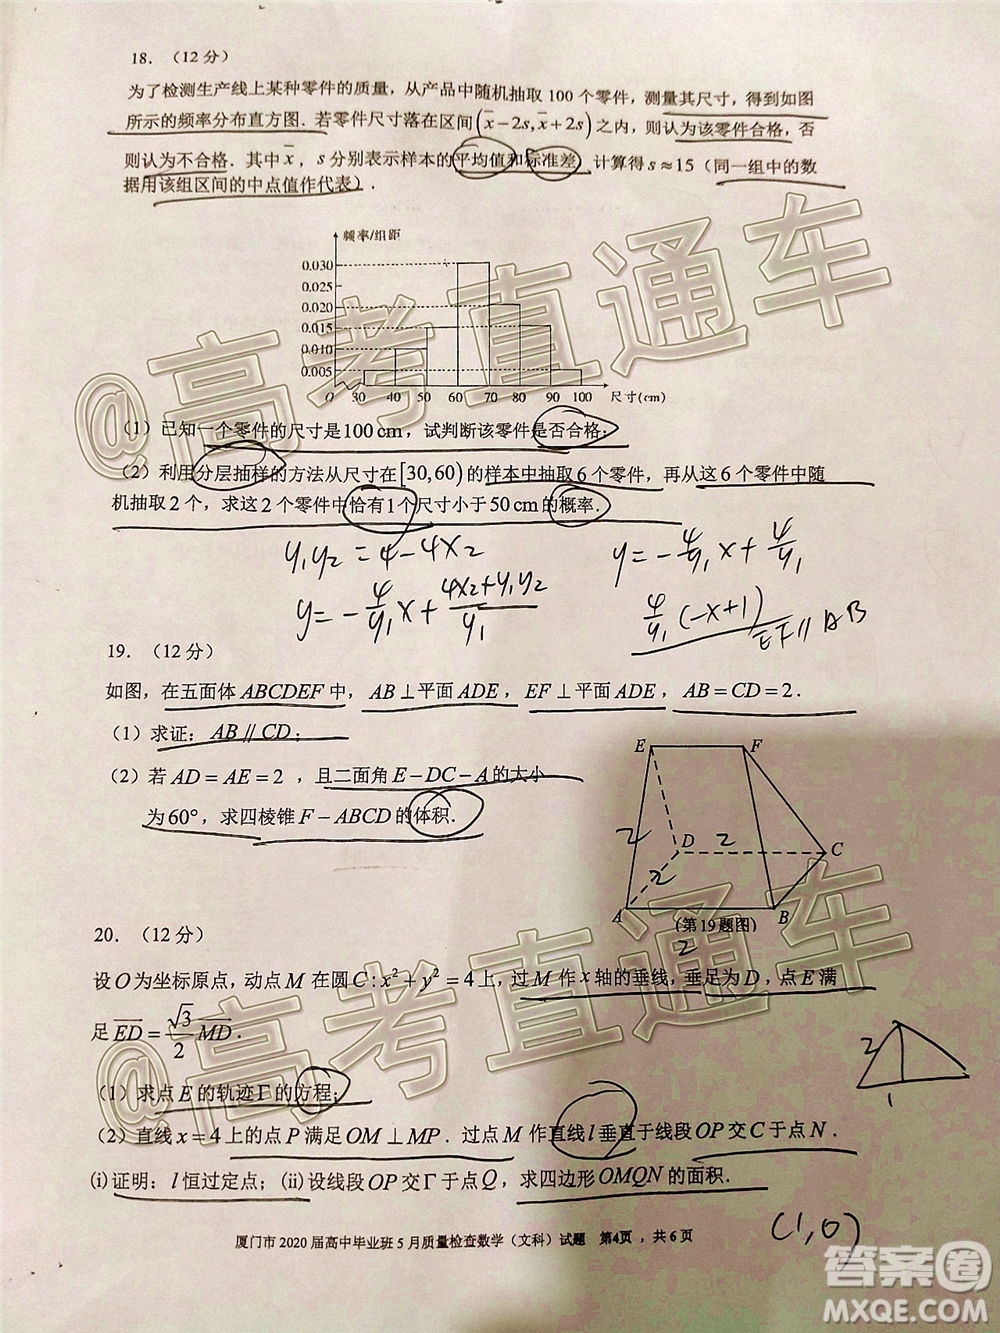 18. （12 分）
为了检测生产线上某种零件的质量，从产品中随机抽取 100 个零件，测量其尺寸，得到如图
所示的频率分布直方图．若零件尺寸落在区间(x̄−2s, x̄+2s)之内，则认为该零件合格，否
则认为不合格．其中 x̄，s 分别表示样本的平均值和标准差，计算得 s≈15（同一组中的数
据用该组区间的中点值作代表）．
频率/组距
0.030
0.025
0.020
0.015
0.010
0.005
O 30 40 50 60 70 80 90 100 尺寸(cm)
（1）已知一个零件的尺寸是100cm，试判断该零件是否合格；
（2）利用分层抽样的方法从尺寸在[30,60)的样本中抽取 6 个零件，再从这 6 个零件中随
机抽取 2 个，求这 2 个零件中恰有 1 个尺寸小于 50cm 的概率．
y₁y₂ = 4 − 4x₂
y = −4/y₁ x + 4/y₁
y = −4/y₁ x + (4x₂+y₁y₂)/y₁
4/y₁ (−x+1)
EF∥AB
19. （12 分）
如图，在五面体 ABCDEF 中，AB⊥平面 ADE，EF⊥平面 ADE，AB=CD=2．
（1）求证：AB∥CD；
（2）若 AD=AE=2，且二面角 E−DC−A 的大小
为 60°，求四棱锥 F−ABCD 的体积．
E F
2 D 2 C
2
A B
（第19题图）
2
20. （12 分）
设 O 为坐标原点，动点 M 在圆 C: x²+y²=4 上，过 M 作 x 轴的垂线，垂足为 D，点 E 满
足 ED = √3/2 MD．
（1）求点 E 的轨迹 Γ 的方程；
（2）直线 x=4 上的点 P 满足 OM⊥MP．过点 M 作直线 l 垂直于线段 OP 交 C 于点 N．
(i)证明：l 恒过定点；(ii)设线段 OP 交 Γ 于点 Q，求四边形 OMQN 的面积．
2
1
(1,0)
厦门市 2020 届高中毕业班 5 月质量检查数学（文科）试题 第4页，共6页
@高考直通车
@高考直通车
答案圈
MXQE.COM